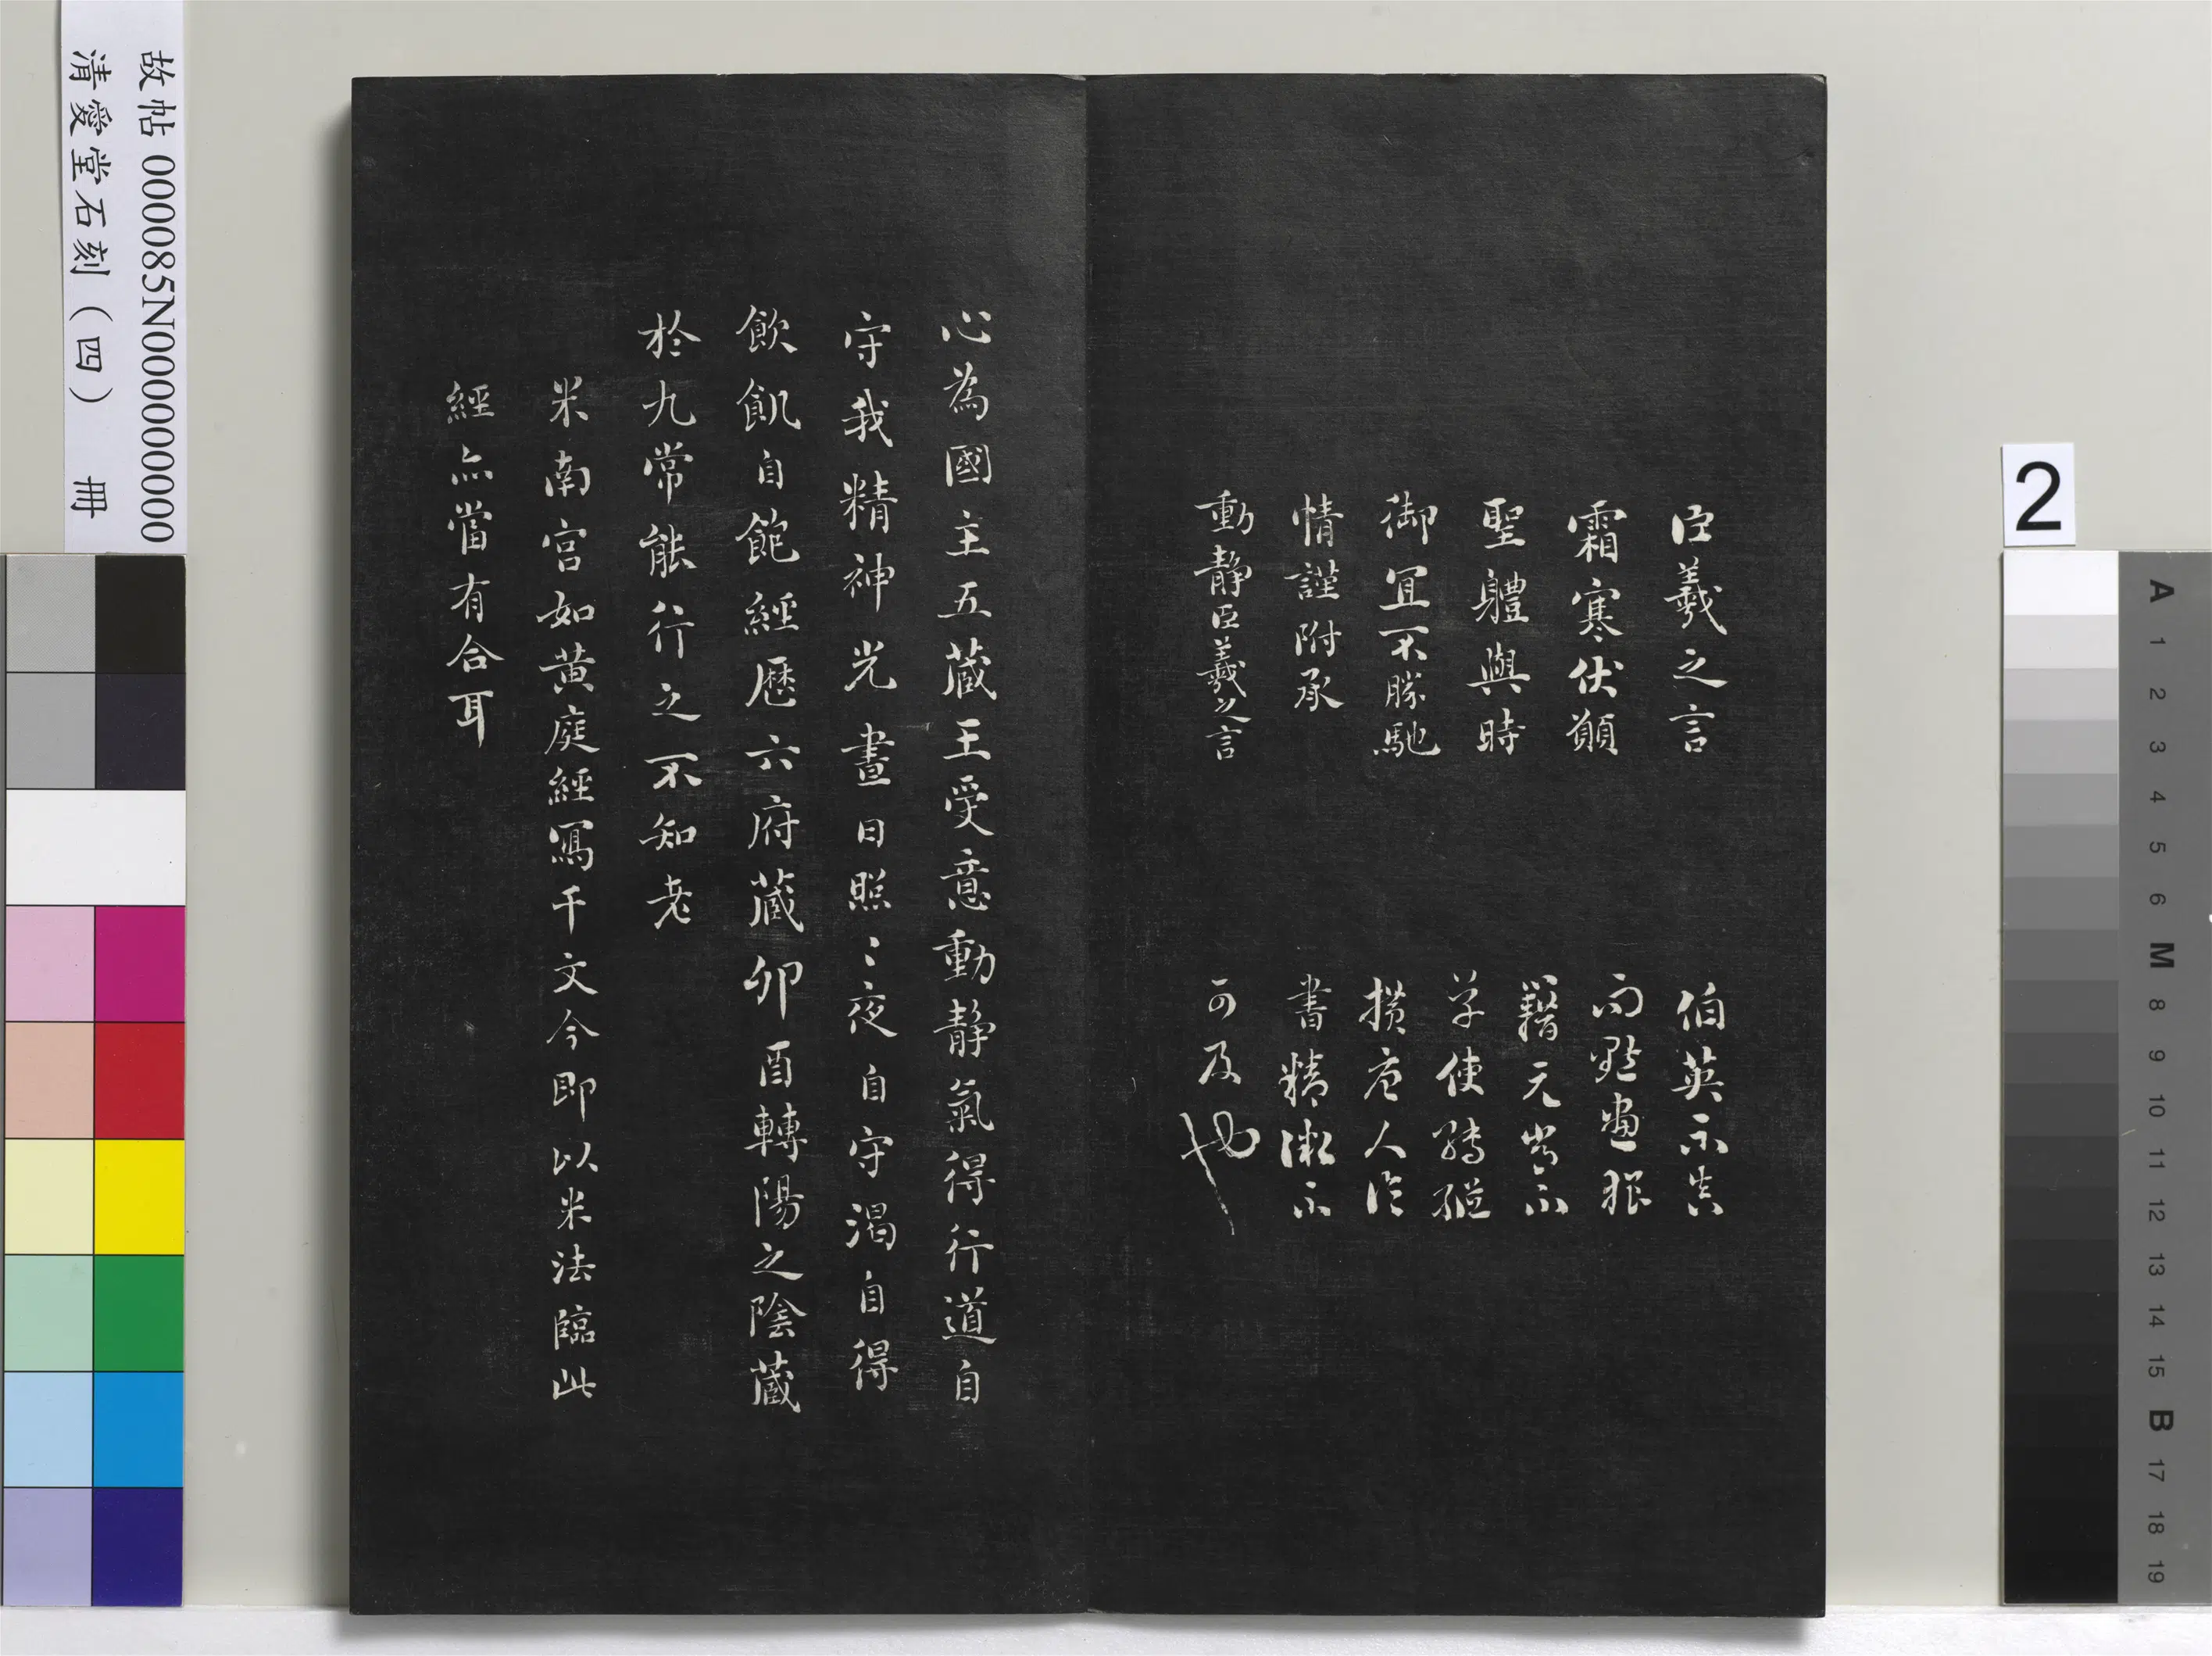 故帖 000085N000000000
清愛堂石刻（四） 冊
2
臣羲之言
霜寒伏願
聖體與時
御宜不勝馳
情謹附承
動靜臣羲之言
伯英不真
而點畫狼
籍元常不
草使轉縱
橫唐人作
書精微不
可及也
心為國主五藏王受意動靜氣得行道自
守我精神光晝日照〻夜自守渴自得
飲飢自飽經歷六府藏卯酉轉陽之陰藏
於九常能行之不知老
米南宮如黃庭經寫千文今即以米法臨此
經亦當有合耳
A
1
2
3
4
5
6
M
8
9
10
11
12
13
14
15
B
17
18
19